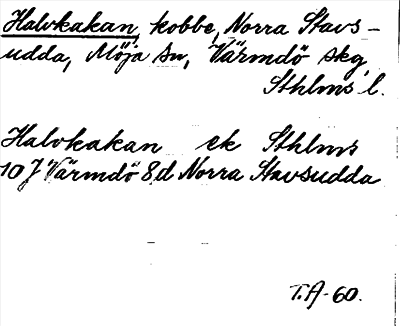 Halvkakan, kobbe, Norra Stavs-
udda, Möja sn, Värmdö skg
Sthlms l.
Halvkakan ek Sthlms
10 J Värmdö 8d Norra Stavsudda
T.A-60.